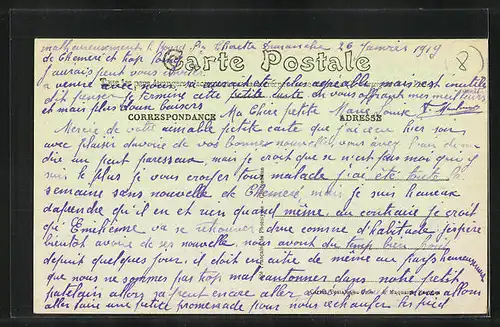 malheureusement le Dimanche 26 Janvier 1919
Carte Postale
de Chemeré et trop
J'aurais peut vous inviter
a venire avec nous, si aurait été plus agréable mais c'est inutile
d'it penser. je termine cette petite carte en vous offrant mes meilleurs
et mais plus doux baisers
CORRESPONDANCE Ma Chère petite Marie Louise
ADRESSE
Mercie de votre aimable petite carte que j'ai recu hier soir
avec plaisir d'avoire de vos bonnes nouvelle, vous avez bien
dire un peut paresseux, mais je croit que se n'est pas moi qui
suis le plus je vous croyer tous malade j'ai été toute la
semaine sans nouvelle de Chemeré mais je suis hureux
d'aprendre qu'il en et rien quand même, au contraire je croit
qu' va se retourner d'une comme d'habitude j'espère
bientôt avoire de ses nouvelle, nous avont du temps bien
depuit quelques jour, il doit en aitre de même au pays heureusement
que nous ne sommes pas trop mal cantonner dans notre petit
patelain allors sa peut encore aller allons
aller faire une petite promenade pour nous rechaufer les pied